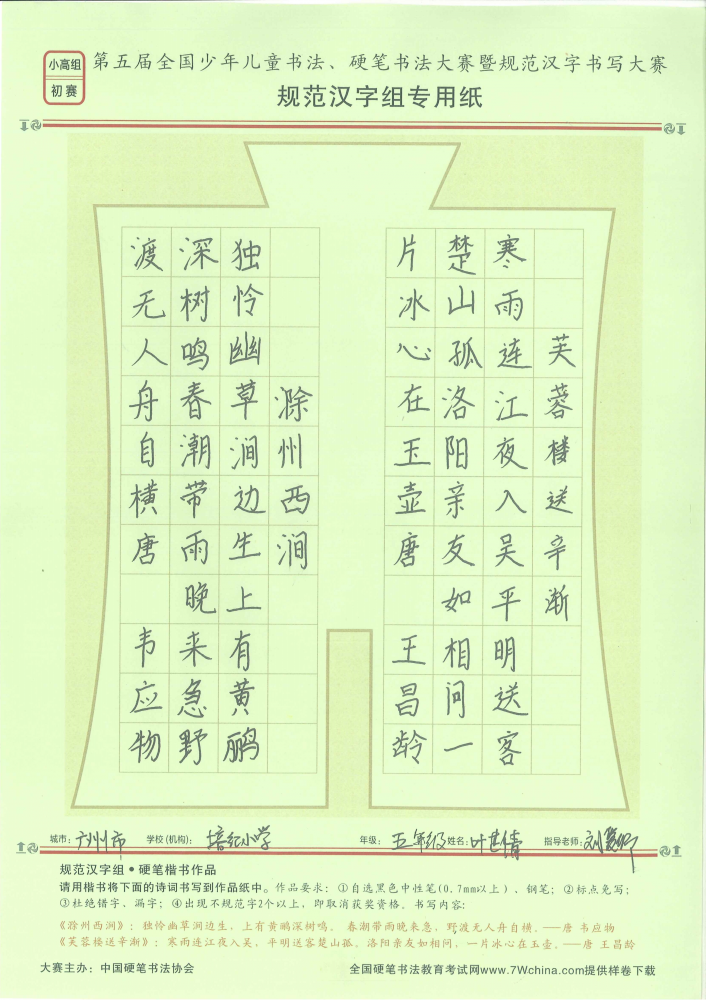 小高组
初赛
第五届全国少年儿童书法、硬笔书法大赛暨规范汉字书写大赛
规范汉字组专用纸
芙蓉楼送辛渐
寒雨连江夜入吴平明送客
楚山孤洛阳亲友如相问一
片冰心在玉壶唐 王昌龄
滁州西涧
独怜幽草涧边生上有黄鹂
深树鸣春潮带雨晚来急野
渡无人舟自横唐 韦应物
城市：广州市 学校(机构)：培纪小学 年级：五年级 姓名：叶 倩 指导老师：刘
规范汉字组●硬笔楷书作品
请用楷书将下面的诗词书写到作品纸中。作品要求：①自选黑色中性笔(0.7mm以上)，钢笔；②标点免写；
③杜绝错字、漏字；④出现不规范字2个以上，即取消获奖资格。书写内容：
《滁州西涧》：独怜幽草涧边生，上有黄鹂深树鸣。 春潮带雨晚来急，野渡无人舟自横。——唐 韦应物
《芙蓉楼送辛渐》：寒雨连江夜入吴，平明送客楚山孤。洛阳亲友如相问，一片冰心在玉壶。——唐 王昌龄
大赛主办：中国硬笔书法协会 全国硬笔书法教育考试网www.7Wchina.com提供样卷下载